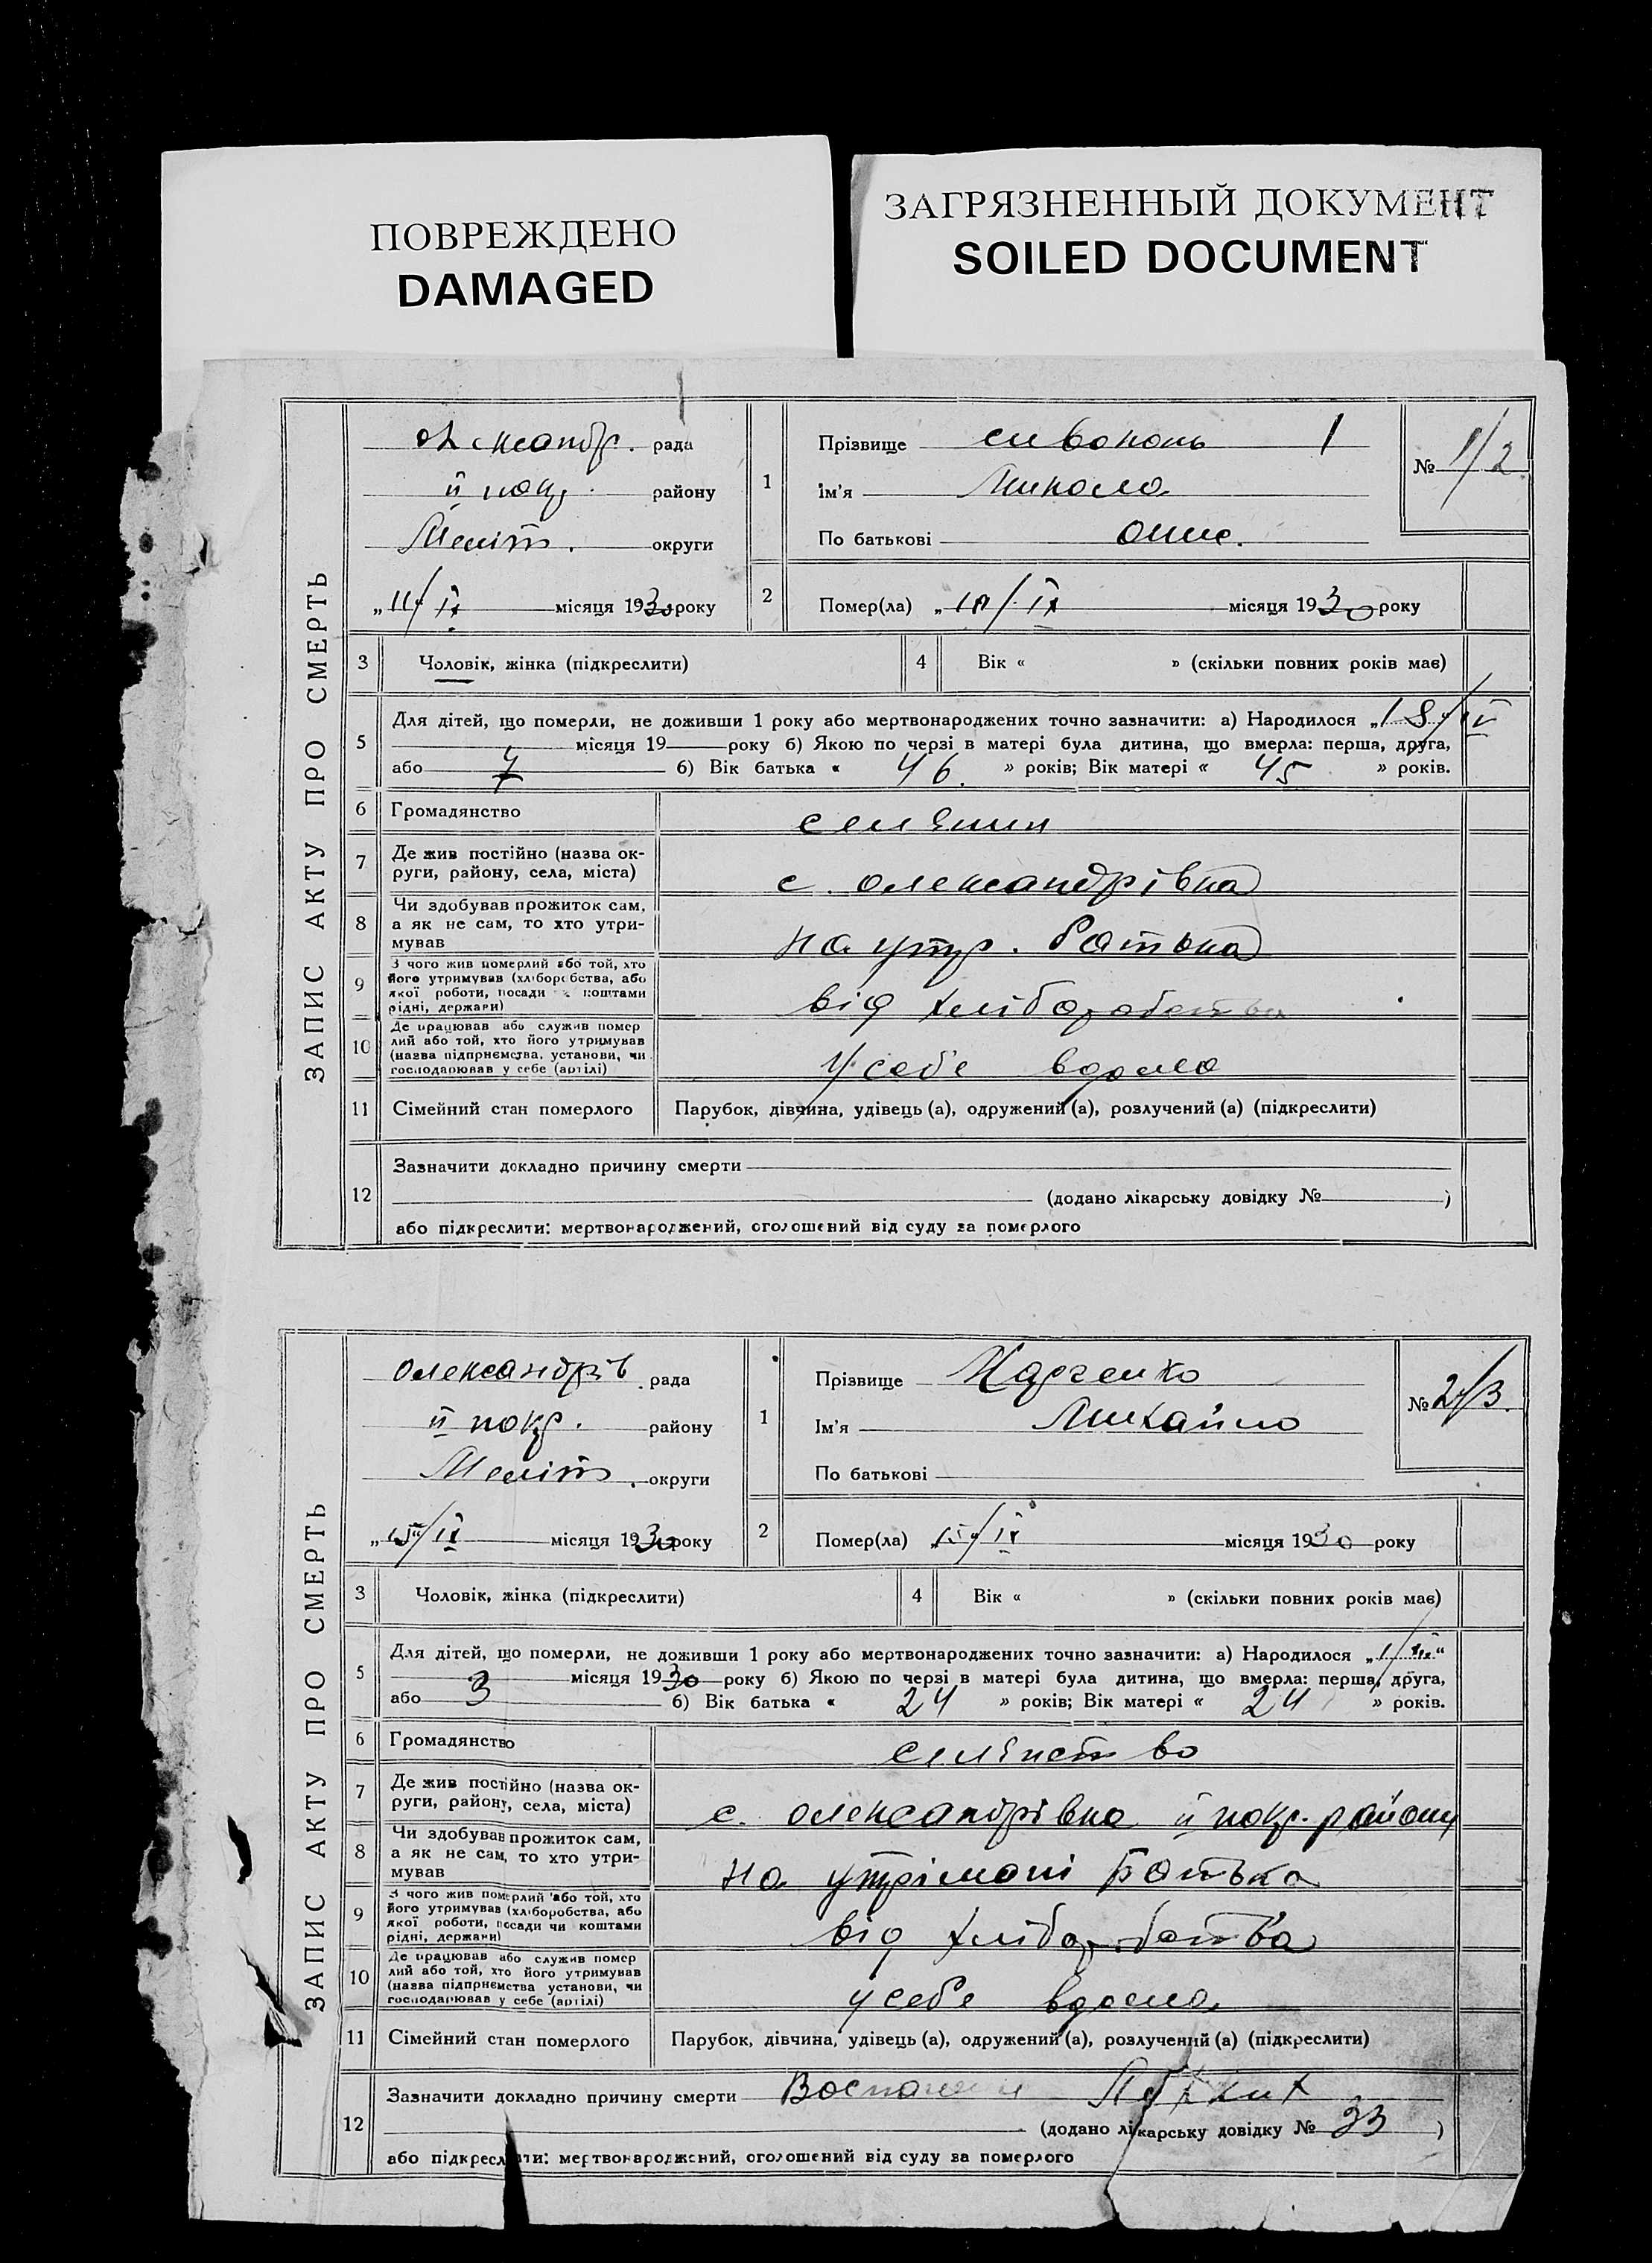 ПОВРЕЖДЕНО
DAMAGED
ЗАГРЯЗНЕННЫЙ ДОКУМЕНТ
SOILED DOCUMENT
ЗАПИС АКТУ ПРО СМЕРТЬ
рада
II покр. району
Меліт. округи
„11/IX місяця 1930 року
1
Прізвище Сивоконь 1
Ім'я Микола
По батькові
№ 1/2
2
Помер(ла) „ /IX місяця 1930 року
3 Чоловік, жінка (підкреслити)
4 Вік « » (скільки повних років має)
5
Для дітей, що померли, не доживши 1 року або мертвонароджених точно зазначити: а) Народилося „18/IV
місяця 19 року б) Якою по черзі в матері була дитина, що вмерла: перша, друга,
або 7 б) Вік батька « 46 » років; Вік матері « 45 » років.
6 Громадянство селянин
7 Де жив постійно (назва ок-
руги, району, села, міста) с. олександрівка
8 Чи здобував прожиток сам,
а як не сам, то хто утри-
мував на утр. батька
9 З чого жив померлий або той, хто
його утримував (хліборобства, або
якої роботи, посади чи коштами
рідні, держави) від хліборобства
10 Де працював або служив помер
лий або той, хто його утримував
(назва підприємства, установи, чи
господарював у себе (артілі) У себе вдома
11 Сімейний стан померлого Парубок, дівчина, удівець (а), одружений (а), розлучений (а) (підкреслити)
12
Зазначити докладно причину смерти
(додано лікарську довідку № )
або підкреслити: мертвонароджений, оголошений від суду за померлого
ЗАПИС АКТУ ПРО СМЕРТЬ
олександрів рада
II покр. району
Меліт. округи
„15/IX місяця 1930 року
1
Прізвище
Ім'я Михайло
По батькові
№ 2/3.
2
Помер(ла) „15/IX місяця 1930 року
3 Чоловік, жінка (підкреслити)
4 Вік « » (скільки повних років має)
5
Для дітей, що померли, не доживши 1 року або мертвонароджених точно зазначити: а) Народилося „ “
місяця 1930 року б) Якою по черзі в матері була дитина, що вмерла: перша, друга,
або 3 б) Вік батька « 24 » років; Вік матері « 24 » років.
6 Громадянство селянство
7 Де жив постійно (назва ок-
руги, району, села, міста) с. олександрівка II покр. району
8 Чи здобував прожиток сам,
а як не сам, то хто утри-
мував на утрімані батька
9 З чого жив померлий або той, хто
його утримував (хліборобства, або
якої роботи, посади чи коштами
рідні, держави) від хліборобства
10 Де працював або служив помер
лий або той, хто його утримував
(назва підприємства установи, чи
господарював у себе (артілі) у себе вдома
11 Сімейний стан померлого Парубок, дівчина, удівець (а), одружений (а), розлучений (а) (підкреслити)
12
Зазначити докладно причину смерти
(додано лікарську довідку № 33 )
або підкреслити: мертвонароджений, оголошений від суду за померлого